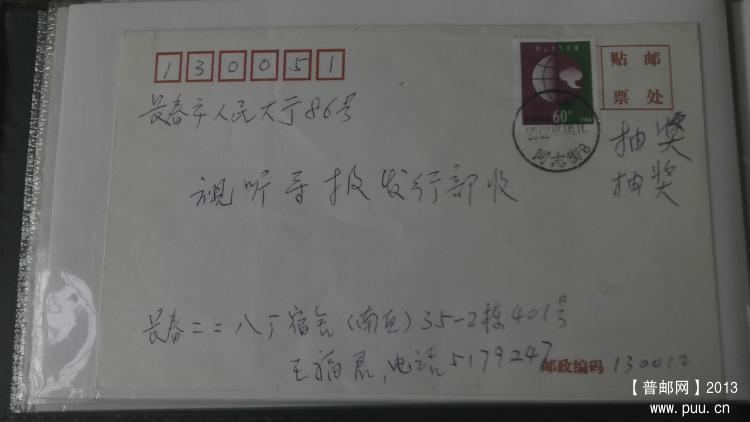 130051
贴邮
票处
60分
同志街
长春市人民大厅86号
抽奖
抽奖
视听导报发行部收
长春二二八厂宿舍(南区)35-2栋401号
王福君,电话5179247
邮政编码 130012
【普邮网】2013
www.puu.cn